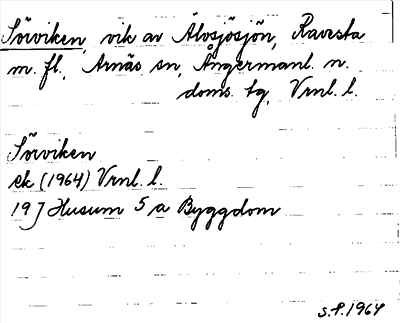 Sörviken, vik av Älvsjösjön, Ravesta
m. fl., Arnäs sn, Ångermanl. n.
doms. tg, Vrnl. l.
Sörviken
ek (1964) Vrnl. l.
19 J Husum 5 a Byggdom
S.P. 1964